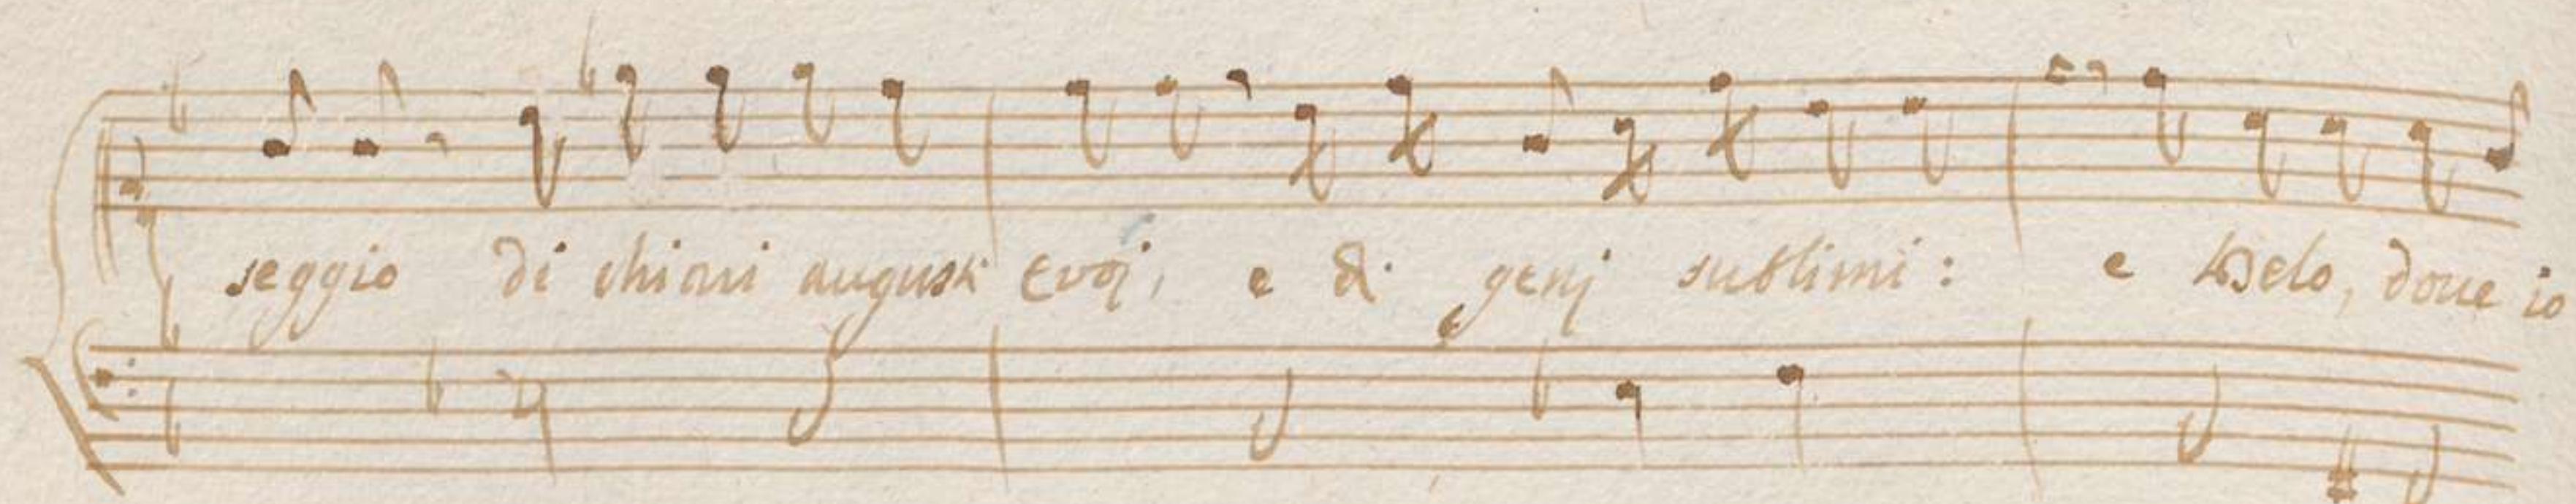 seggio di chiari augusti Eroi, e di genj sublimi: e Delo, doue io